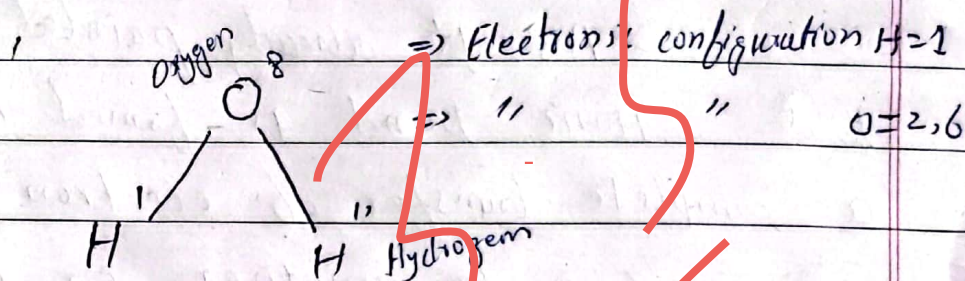 Oxygen 8 => Electronic configuration H=1
O => " " O=2,6
1 1,
H H Hydrogem